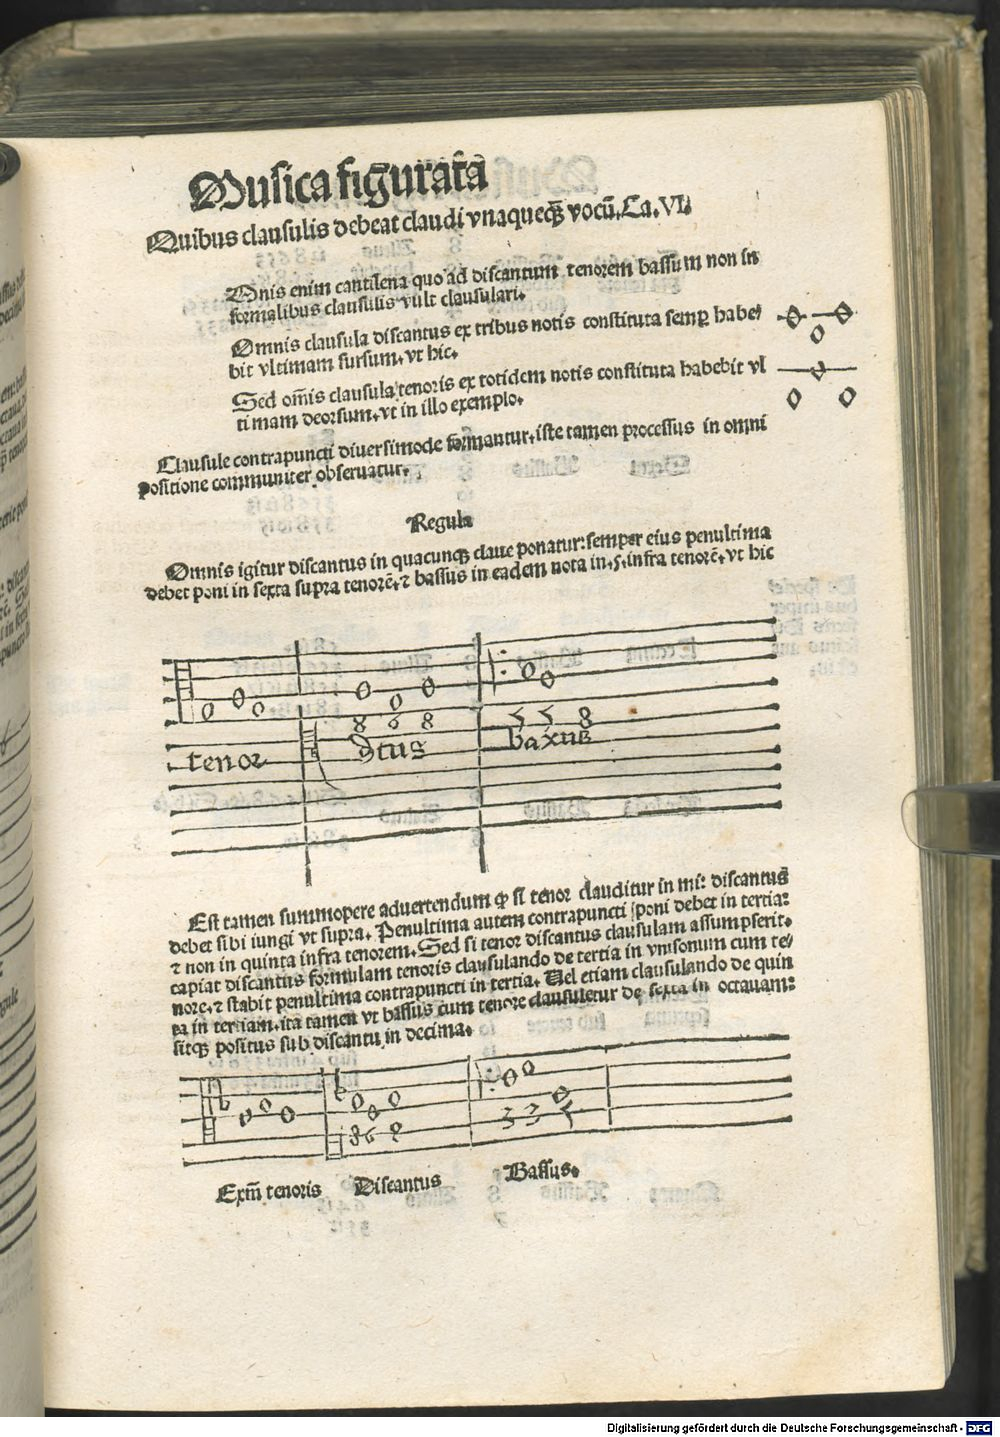 Musica figuratā
Quibus clausulis debeat claudi vnaqueq̄ vocū. Ca. VI.
Omnis enim cantilena quo ad discantum tenorem bassum non in
formalibus clausulis vult clausulari.
Omnis clausula discantus ex tribus notis constituta semp̱ habe/
bit vltimam sursum. vt hic.
Sed om̄is clausula tenoris ex totidem notis constituta habebit vl
timam deorsum. vt in illo exemplo.
Clausule contrapuncti diuersimode formantur. iste tamen processus in omni
positione communiter obseruatur.
Regula
Omnis igitur discantus in quacunqꝫ claue ponatur: semper eius penultima
debet poni in sexta supra tenorē. ⁊ bassus in eadem nota in .5. infra tenorē. vt hic
8 6 8
5 5 8
tenor
dtus
baxus
Est tamen summopere aduertendum ꝙ si tenor clauditur in mi: discantus
debet sibi iungi vt supra. Penultima autem contrapuncti poni debet in tertia:
⁊ non in quinta infra tenorem. Sed si tenor discantus clausulam assumpserit.
capiat discantus formulam tenoris clausulando de tertia in vnisonum cum te/
nore. ⁊ stabit penultima contrapuncti in tertia. Uel etiam clausulando de quin
ta in tertiam. ita tamen vt bassus cum tenore clausuletur de sexta in octauam:
sitqꝫ positus sub discantu in decima.
8 6 8
3 3 5
Exm̄ tenoris
Discantus
Bassus.
Digitalisierung gefördert durch die Deutsche Forschungsgemeinschaft - DFG